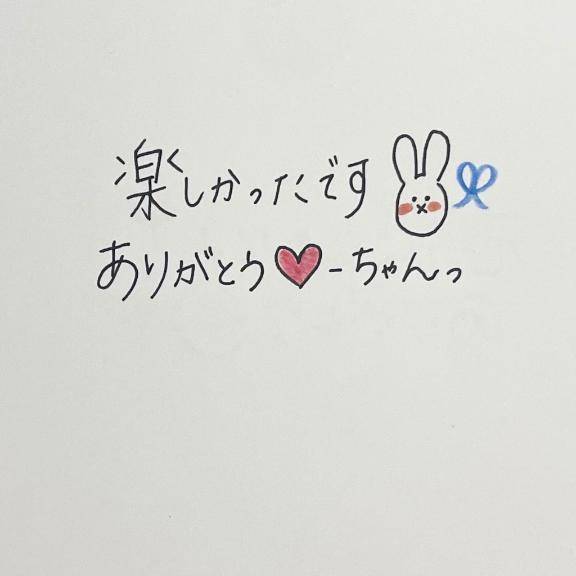 楽しかったです
ありがとう♥ーちゃんっ